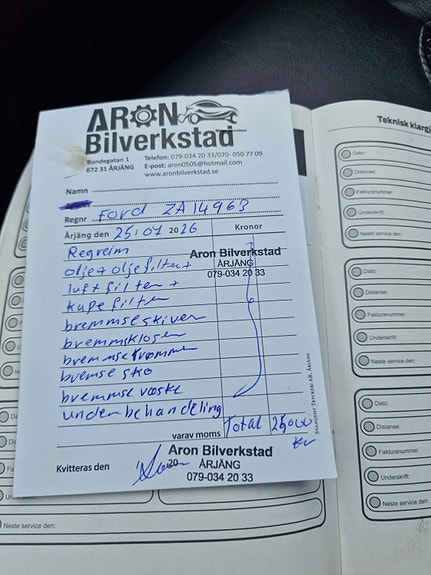 ARON
Bilverkstad
Bondegatan 1
672 31 ÅRJÄNG
Telefon: 079-034 20 33/070- 050 77 09
E-post: aron0505@hotmail.com
www.aronbilverkstad.se
Namn
Regnr Ford ZA14963
Årjäng den 25/07 2026 Kronor
Regreim
olje + oljefilter +
luftfilter +
kupefilter
bremmseskiver
bremmskloser
bremmsetromme
bremse sko
bremmse væske
underbehandling
Aron Bilverkstad
ÅRJÄNG
079-034 20 33
Total 25,000
kr
varav moms
Kvitteras den
20
Aron Bilverkstad
ÅRJÄNG
079-034 20 33
STRANDQVIST TRYCKERI AB, ÅRJÄNG
Teknisk klargj
Dato:
Distanse:
Fakturanummer:
Underskrift:
Neste service den:
Dato:
Distanse:
Fakturanummer:
Underskrift:
Neste service den:
Dato:
Distanse:
Fakturanummer:
Underskrift:
Neste service den:
Neste service den: